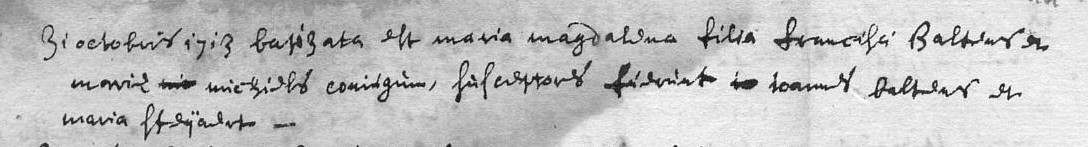 31 octobris 1713 baptizata est maria magdalena filia francisci Baltens et
mariē michiels coniugum, susceptores fuerunt ioannes baltens et
maria steÿaert —